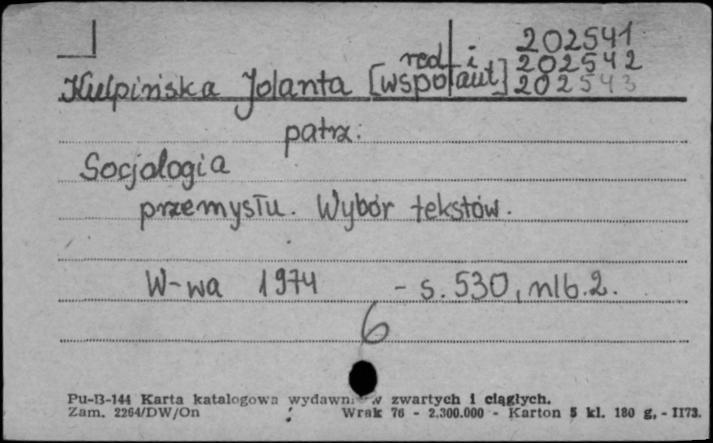 202541
red. i 202542
Kulpińska Jolanta [współaut] 202543
patrz:
Socjologia
przemysłu. Wybór tekstów.
W-wa 1974 - s. 530, nlb. 2.
6
Pu-B-144 Karta katalogowa wydawnictw zwartych i ciągłych.
Zam. 2264/DW/On Wrak 76 - 2.300.000 - Karton 5 kl. 180 g, - II73.